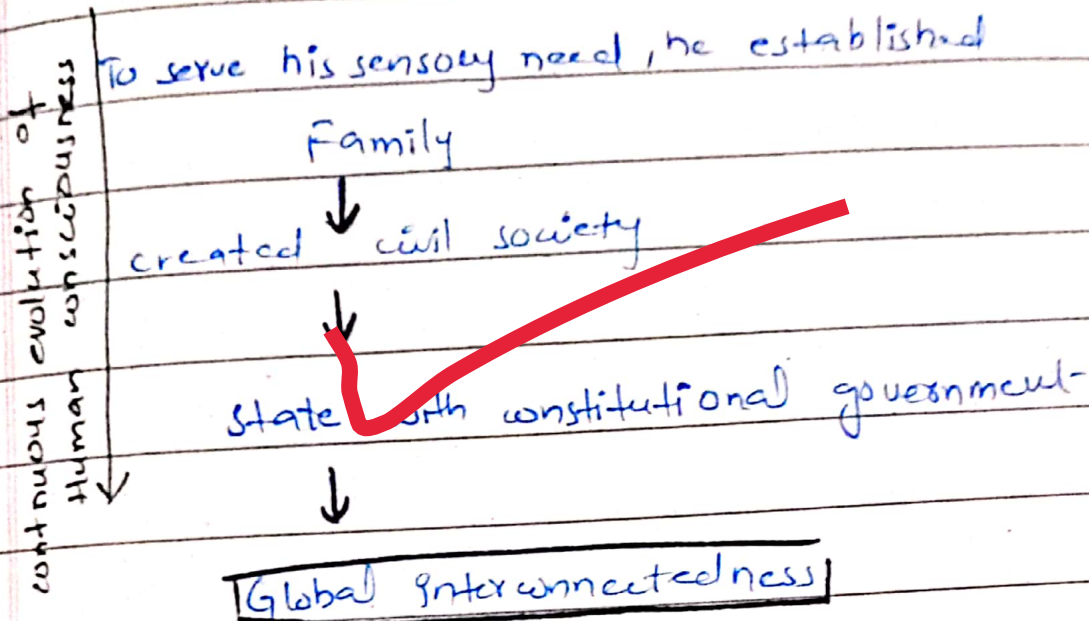 continuous evolution of
Human consciousness
To serve his sensory need, he established
Family
created civil society
State with constitutional government
Global Interconnectedness